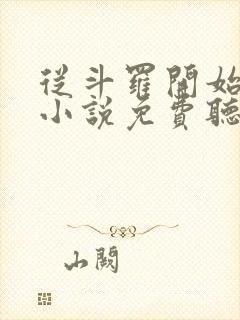 從斗羅開始
小說免費聽
山闕